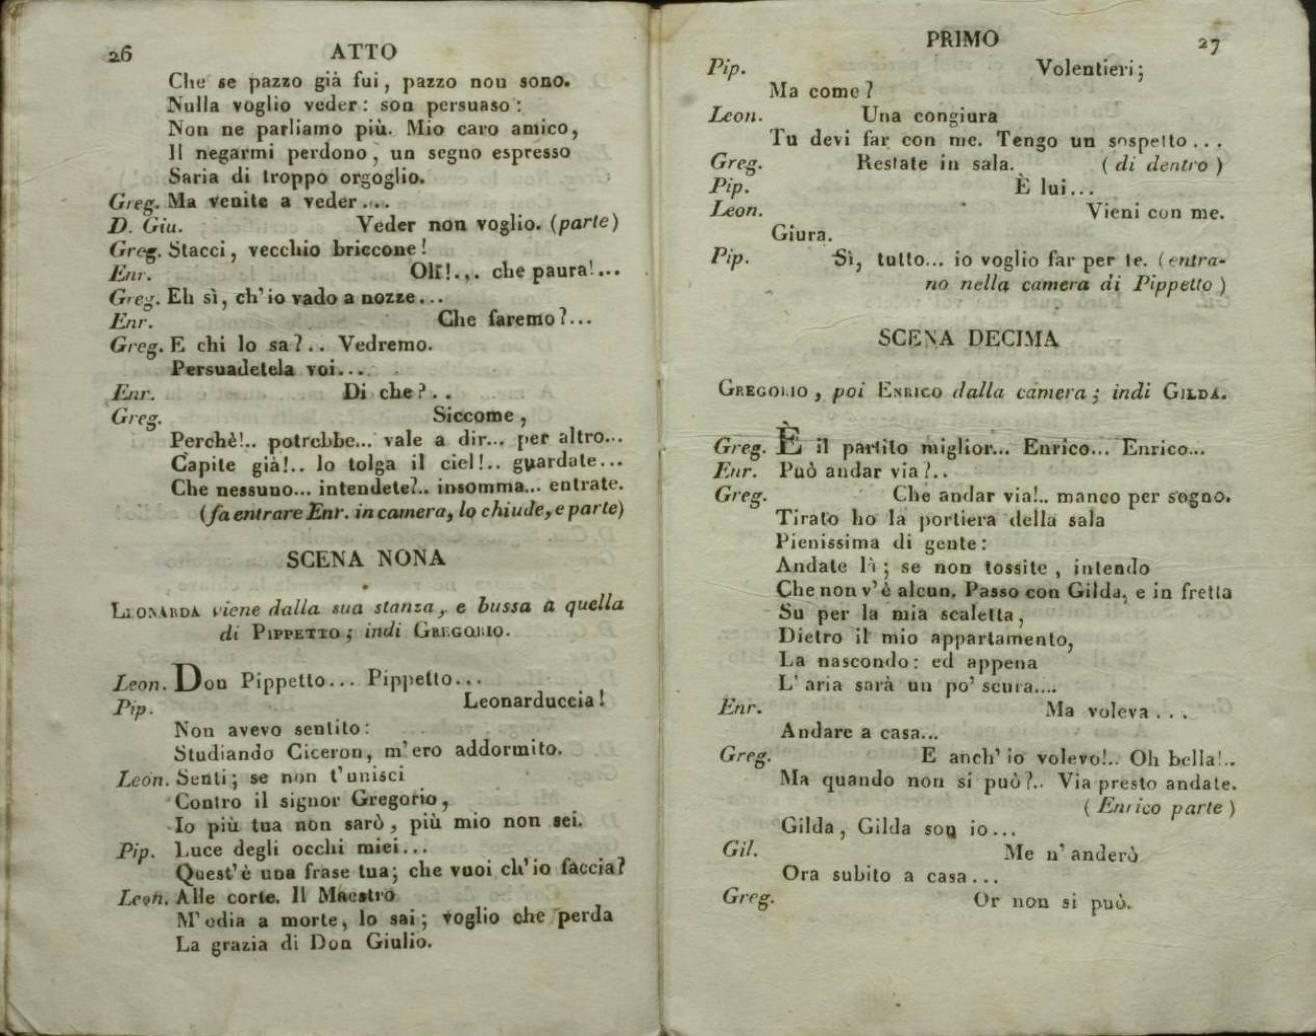 26 ATTO
Che se pazzo già fui, pazzo non sono.
Nulla voglio veder: son persuaso:
Non ne parliamo più. Mio caro amico,
Il negarmi perdono, un segno espresso
Saria di troppo orgoglio.
Greg. Ma venite a veder....
D. Giu. Veder non voglio. (parte)
Greg. Stacci, vecchio briccone!
Enr. Oh!... che paura!...
Greg. Eh sì, ch'io vado a nozze...
Enr. Che faremo?...
Greg. E chi lo sa?.. Vedremo.
Persuadetela voi....
Enr. Di che?..
Greg. Siccome,
Perchè!.. potrebbe... vale a dir... per altro...
Capite già!.. lo tolga il ciel!.. guardate...
Che nessuno... intendete?.. insomma... entrate.
(fa entrare Enr. in camera, lo chiude, e parte)
SCENA NONA
LEONARDA viene dalla sua stanza, e bussa a quella
di PIPPETTO; indi GREGORIO.
Leon. Don Pippetto... Pippetto...
Pip. Leonarduccia!
Non avevo sentito:
Studiando Ciceron, m'ero addormito.
Leon. Senti; se non t'unisci
Contro il signor Gregorio,
Io più tua non sarò, più mio non sei.
Pip. Luce degli occhi miei...
Quest'è una frase tua; che vuoi ch'io faccia?
Leon. Alle corte. Il Maestro
M'odia a morte, lo sai; voglio che perda
La grazia di Don Giulio.
PRIMO 27
Pip. Volentieri;
Ma come?
Leon. Una congiura
Tu devi far con me. Tengo un sospetto...
Greg. Restate in sala. (di dentro)
Pip. È lui...
Leon. Vieni con me.
Giura.
Pip. Sì, tutto... io voglio far per te. (entra-
no nella camera di Pippetto)
SCENA DECIMA
GREGORIO, poi ENRICO dalla camera; indi GILDA.
Greg. È il partito miglior... Enrico... Enrico...
Enr. Può andar via?..
Greg. Che andar via!.. manco per sogno.
Tirato ho la portiera della sala
Pienissima di gente:
Andate là; se non tossite, intendo
Che non v'è alcun. Passo con Gilda, e in fretta
Su per la mia scaletta,
Dietro il mio appartamento,
La nascondo: ed appena
L'aria sarà un po' scura....
Enr. Ma voleva...
Andare a casa...
Greg. E anch'io volevo!.. Oh bella!..
Ma quando non si può?.. Via presto andate.
(Enrico parte)
Gilda, Gilda son io...
Gil. Me n'anderò
Ora subito a casa...
Greg. Or non si può.